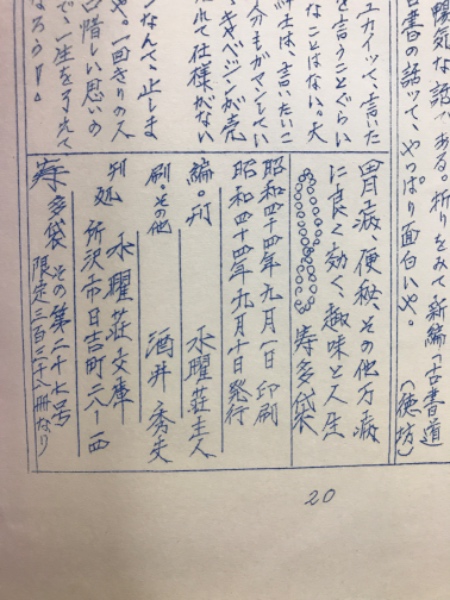 陽気な話である。折りをみて新編「古書道
古書の話って、やっぱり面白いや。
(徳坊)
ユカイって、言いた
を言うことぐらい
なことはない。大
紳士は、言いたいこ
分もガマンしてい
、キャベジンが売
れて仕様がない
ンなんて、止しま
や。一回きりの人
口惜しい思いの
で、一生を了えて
なろう!。
胃病、便秘、その他万病
に良く効く、趣味と人生
寿多袋
昭和四十四年九月一日印刷
昭和四十四年九月十日発行
編。刊 水曜荘主人
刷。その他 酒井秀夫
刊処 水曜荘文庫
所沢市日吉町二八ー一四
寿多袋 その第二十七号
限定三百三十八冊なり
20